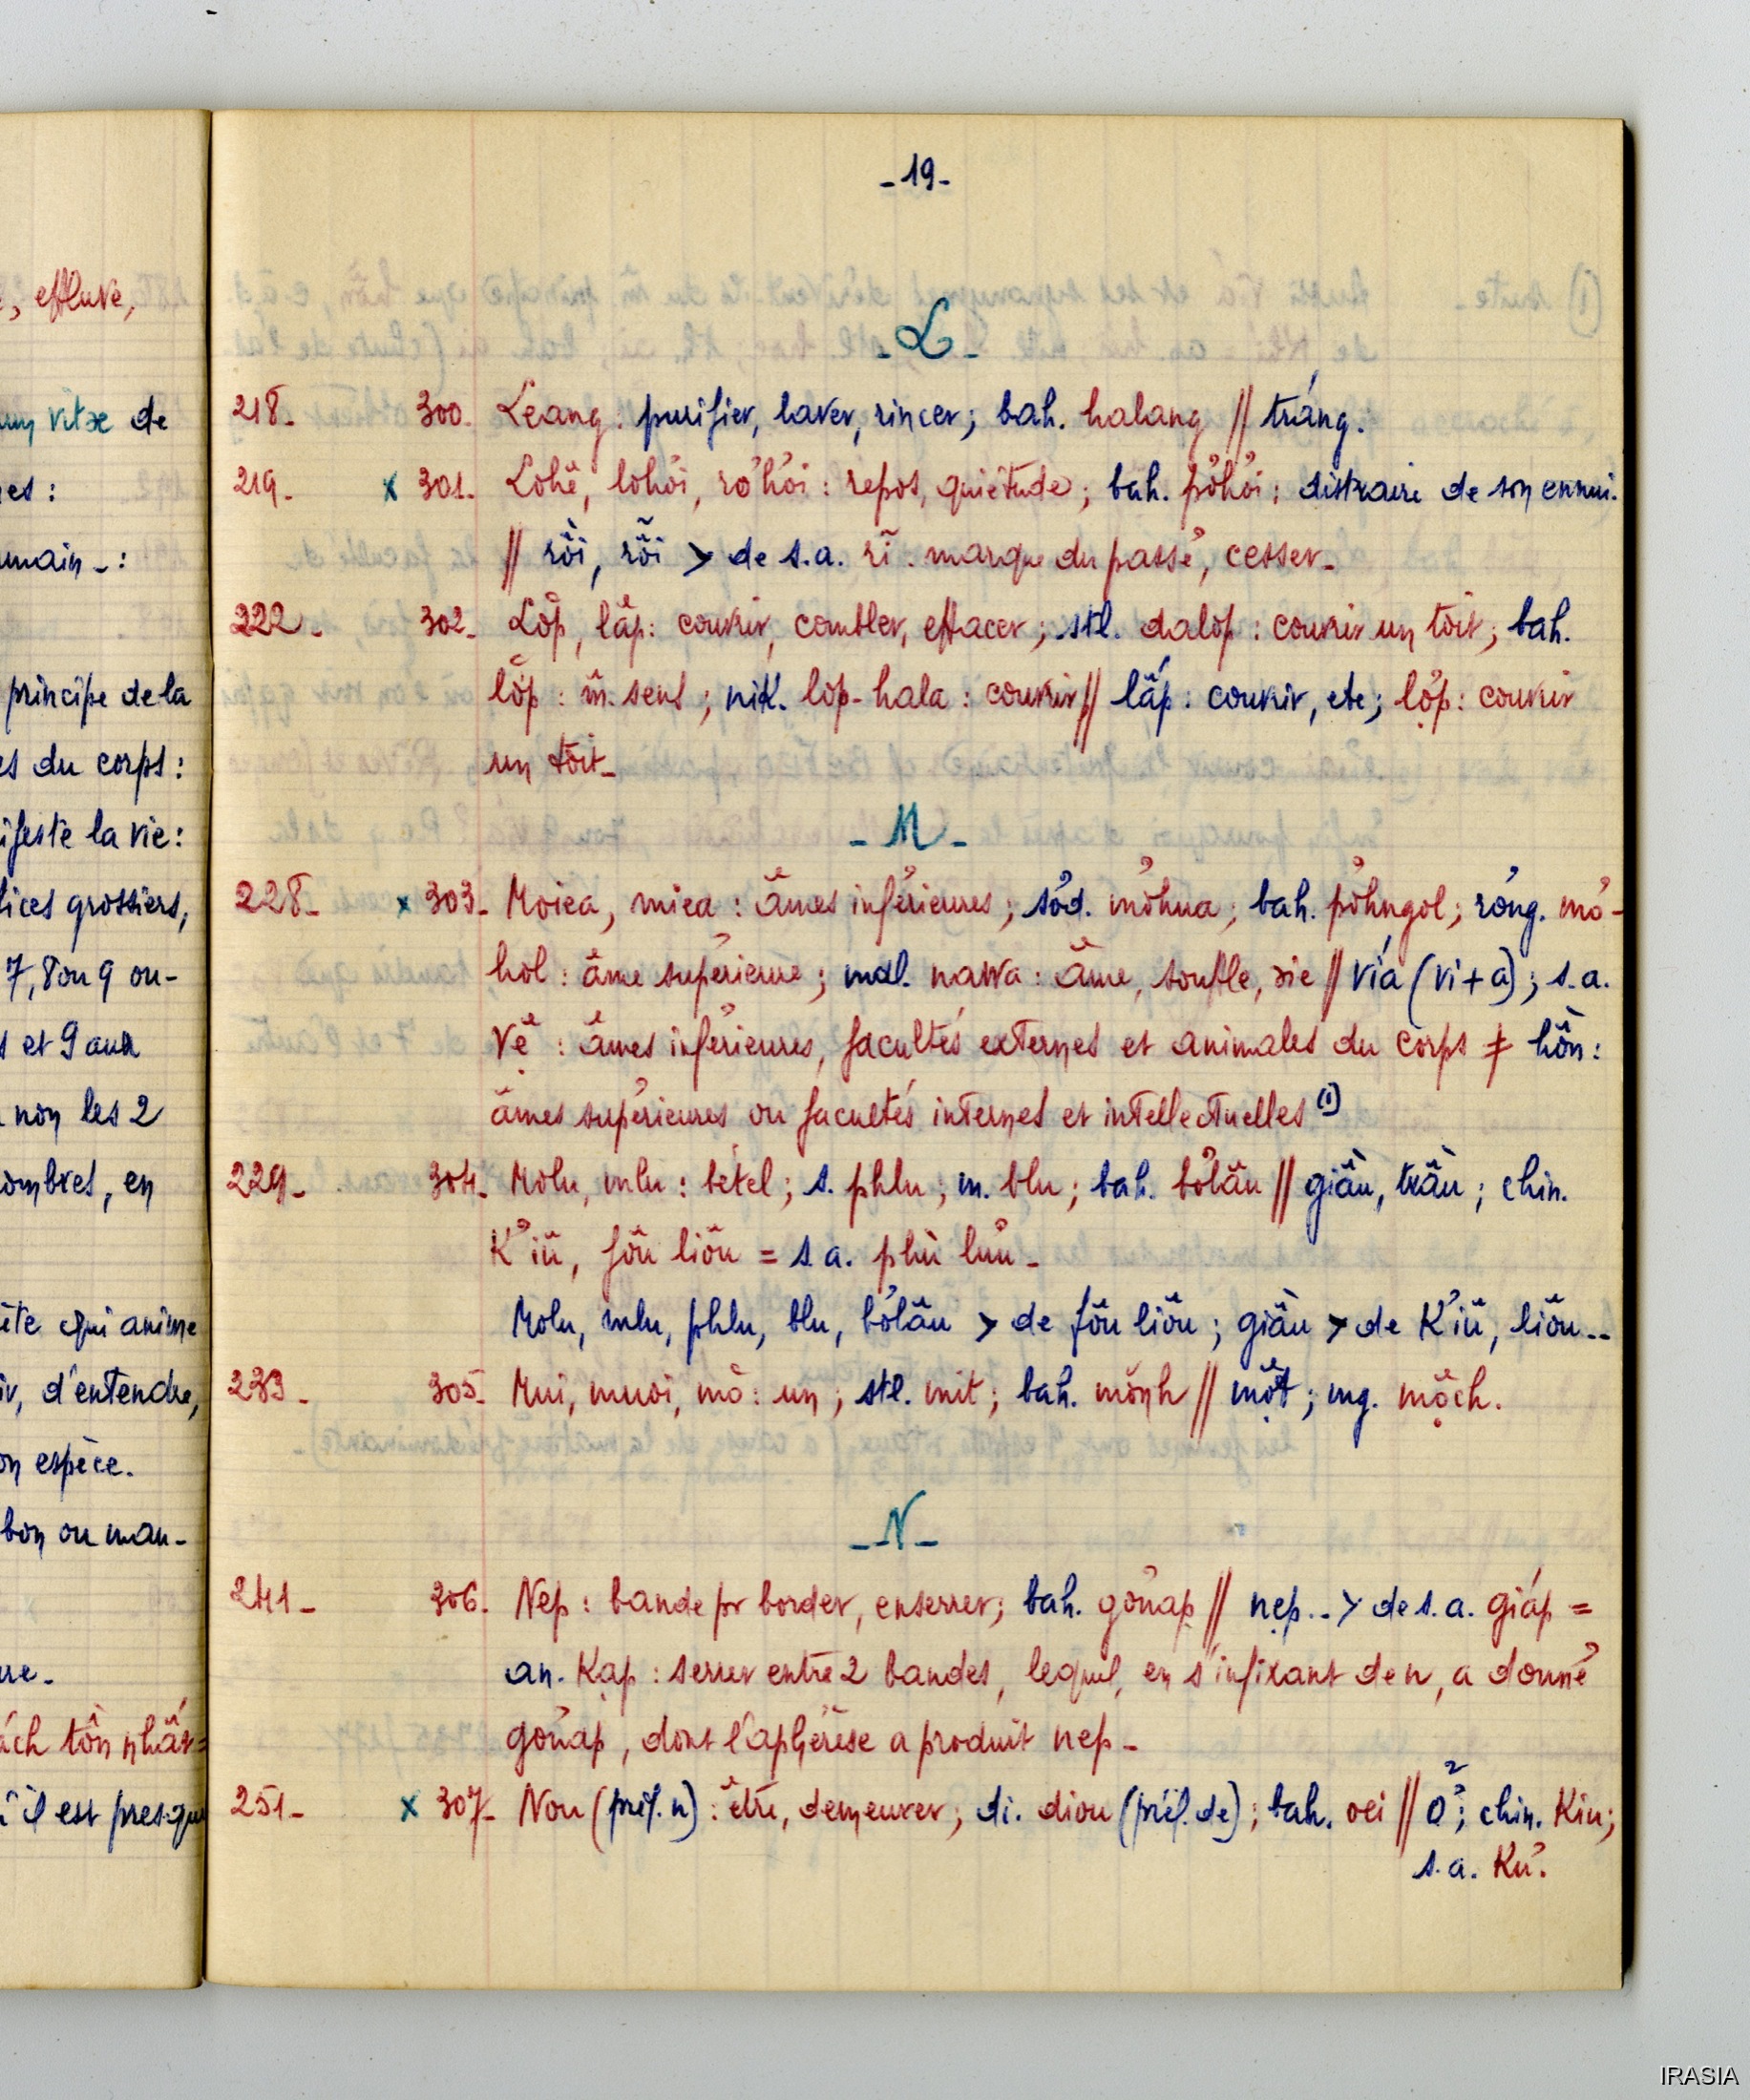 , effluve,
vitae de
es :
umain _ :
principe de la
es du corps :
ifeste la vie :
lices grossiers,
7, 8 ou 9 ou-
et 9 aux
non les 2
ombres, en
ète qui anime
d'entendre,
on espèce.
bon ou mau-
ách tôn nhất =
il est presque
- 19 -
- L -
218 _ 300 _ Leang : purifier, laver, rincer ; bah. halang // tráng.
219 _ x 301 _ Lohê, lohơi, rơhơi : repos, quiétude ; bah. pơhơi : distraire de son ennui.
// rồi, rỗi > de s.a. rĩ : marque du passé, cesser _
222 _ 302 _ Lôp, lâp : couvrir, combler, effacer ; stl. dalop : couvrir un toit ; bah.
lôp : m̂. sens ; nik. lop-hala : couvrir // lấp : couvrir, etc ; lợp : couvrir
un toit _
- M -
228 _ x 303 _ Moiea, miea : âmes inférieures ; sơd. mơhua ; bah. pơhngol ; rơng. mơ-
hol : âme supérieure ; mal. nawa : âme, souffle, vie // vía (vi + a) ; s.a.
Vệ : âmes inférieures, facultés externes et animales du corps ≠ hồn :
âmes supérieures ou facultés internes et intellectuelles (1)
229 _ 304 _ Molu, mlu : bétel ; s. phlu ; m. blu ; bah. bơlâu // giầu, trầu ; chin.
K'iŭ, fŏu liŏu = s.a. phù lưu _
Molu, mlu, phlu, blu, bơlâu > de fŏu liŏu ; giầu > de K'iŭ, liŏu ..
233 _ 305 _ Mui, muoi, mô : un ; stl. mit ; bah. mônh // một ; mg. mộch.
- N -
241 _ 306 _ Nep : bande pr border, enserrer ; bah. gơnap // nẹp .. > de s.a. giáp =
an. Kạp : serrer entre 2 bandes, lequel, en s'infixant de n, a donné
gơnap, dont l'aphérèse a produit nep _
251 _ x 307 _ Nou (préf. n) : être, demeurer ; di. diou (préf. de) ; bah. oei // ở ² ; chin. Kiu ;
s.a. Kư.
IRASIA